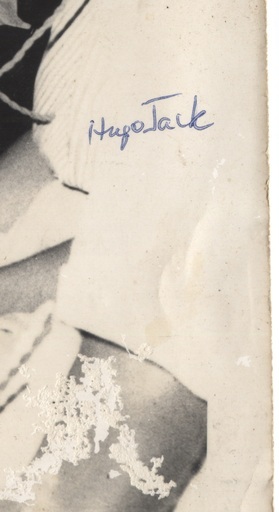 Hugo Jack